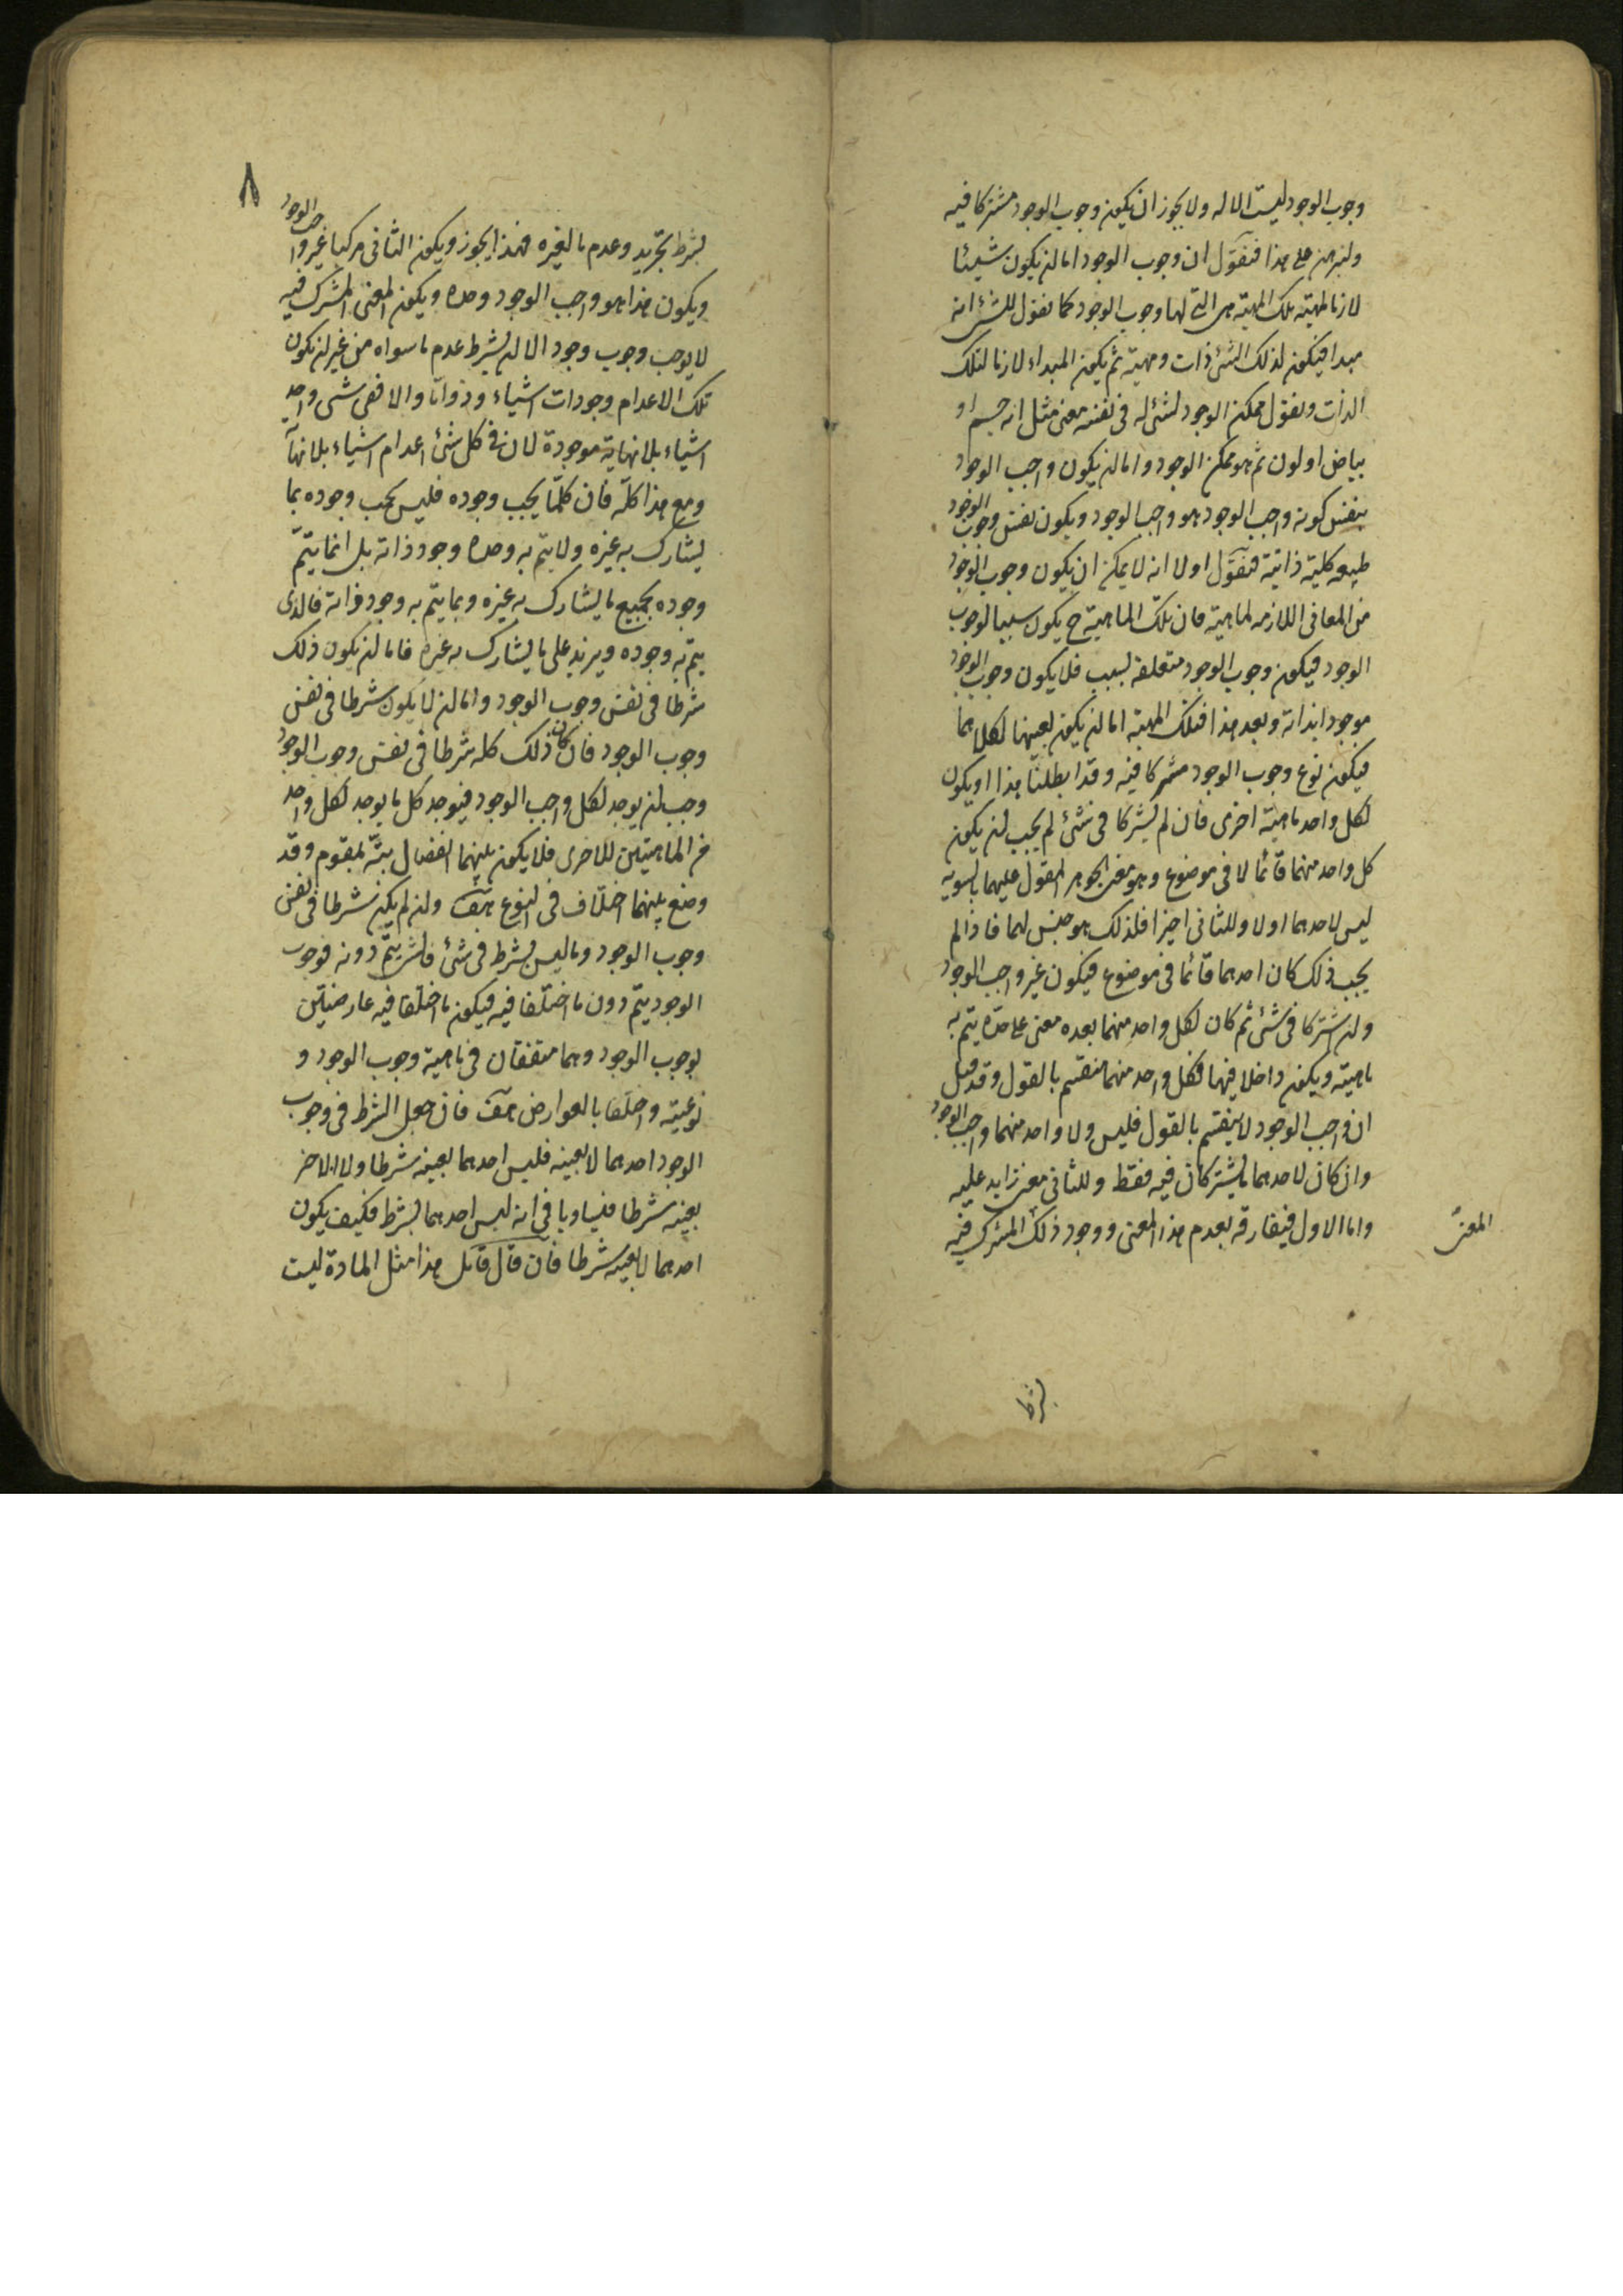 وجوب الوجود ليست الا له ولا يجوز ان يكون وجوب الوجود مشتركا فيه
ولنبرهن على هذا فنقول ان وجوب الوجود اما ان يكون شيئا
لازما لمهية تلك المهية هى التى لها وجوب الوجود كما نقول للشئ انه
مبدا فيكون لذلك الشئ ذات ومهية ثم يكون المبداء لازما لتلك
الذات ونقول ممكن الوجود لشئ له فى نفسه معنى مثل انه جسم او
بياض او لون ثم هو ممكن الوجود واما ان يكون واجب الوجود
بنفس كونه واجب الوجود هو واجب الوجود ويكون نفس وجوب الوجود
طبيعه كلية ذاتية فنقول اولا انه لا يمكن ان يكون وجوب الوجود
من المعانى اللازمه لماهية فان تلك الماهية ح يكون سببا لوجوب
الوجود فيكون وجوب الوجود متعلقه بسبب فلا يكون وجوب الوجود
موجودا بذاته وبعد هذا فتلك المهية اما ان يكون بعينها لكلاهما
فيكون نوع وجوب الوجود مشتركا فيه وقد ابطلنا هذا او يكون
لكل واحد ماهية اخرى فان لم يشتركا فى شئ لم يجب ان يكون
كل واحد منهما قائما لا فى موضوع وهو معنى الجوهر المقول عليهما بالسويه
ليس لاحدهما اولا وللثانى اخيرا فلذلك هو جنس لهما فاذا لم
يجب ذلك كان احدهما قائما فى موضوع فيكون غير واجب الوجود
وان اشتركا فى شئ ثم كان لكل واحد منهما بعده معنى على حده يتم به
ماهيته ويكون داخلا فيهما فكل واحد منهما منقسم بالقول وقد قيل
ان واجب الوجود لا ينقسم بالقول فليس ولا واحد منهما واجب الوجود
وان كان لاحدهما ما يشتركان فيه فقط وللثانى معنى زايد عليه
واما الاول فيفارقه بعدم هذا المعنى ووجود ذلك المشترك فيه
المعنى
بشرط
٨
بشرط تجريد وعدم ما لغيره فهذا يجوز ويكون الثانى مركبا غير واجب الوجود
ويكون هذا هو واجب الوجود وحده ويكون المعنى المشترك فيه
لا يوجب وجوب وجود الا ان يشرط عدم ما سواه من غير ان يكون
تلك الاعدام وجودات اشياء وذواتا والا ففى شئ واحد
اشياء بلا نهاية موجودة لان فى كل شئ اعدام اشياء بلا نهاية
ومع هذا كله فان كلما يجب وجوده فليس يجب وجوده بما
يشارك به غيره ولا يتم به وحده وجود ذاته بل انما يتم
وجوده بجميع ما يشارك به غيره وبما يتم به وجود ذاته فالذى
يتم به وجوده ويزيد على ما يشارك به غيره فاما ان يكون ذلك
شرطا فى نفس وجوب الوجود واما ان لا يكون شرطا فى نفس
وجوب الوجود فان كان ذلك كله شرطا فى نفس وجوب الوجود
وجب ان يوجد لكل واجب الوجود فيوجد كل ما يوجد لكل واحد
من الماهيتين للاخرى فلا يكون بينهما انفصال بتة بمقوم وقد
وضع بينهما اختلاف فى النوع هف وان لم يكن شرطا فى نفس
وجوب الوجود وما ليس بشرط فى شئ فالشئ يتم دونه فوجوب
الوجود يتم دون ما اختلفا فيه فيكون ما اختلفا فيه عارضيتين
لوجوب الوجود وهما متفقان فى ماهية وجوب الوجود و
نوعيته واختلفا بالعوارض هف فان جعل الشرط فى وجوب
الوجود احدهما لا بعينه فليس احدهما بعينه شرطا ولا الاخر
بعينه شرطا فتساويا فى انه ليس احدهما بشرط فكيف يكون
احدهما لا بعينه شرطا فان قال قائل هذا مثل المادة ليست